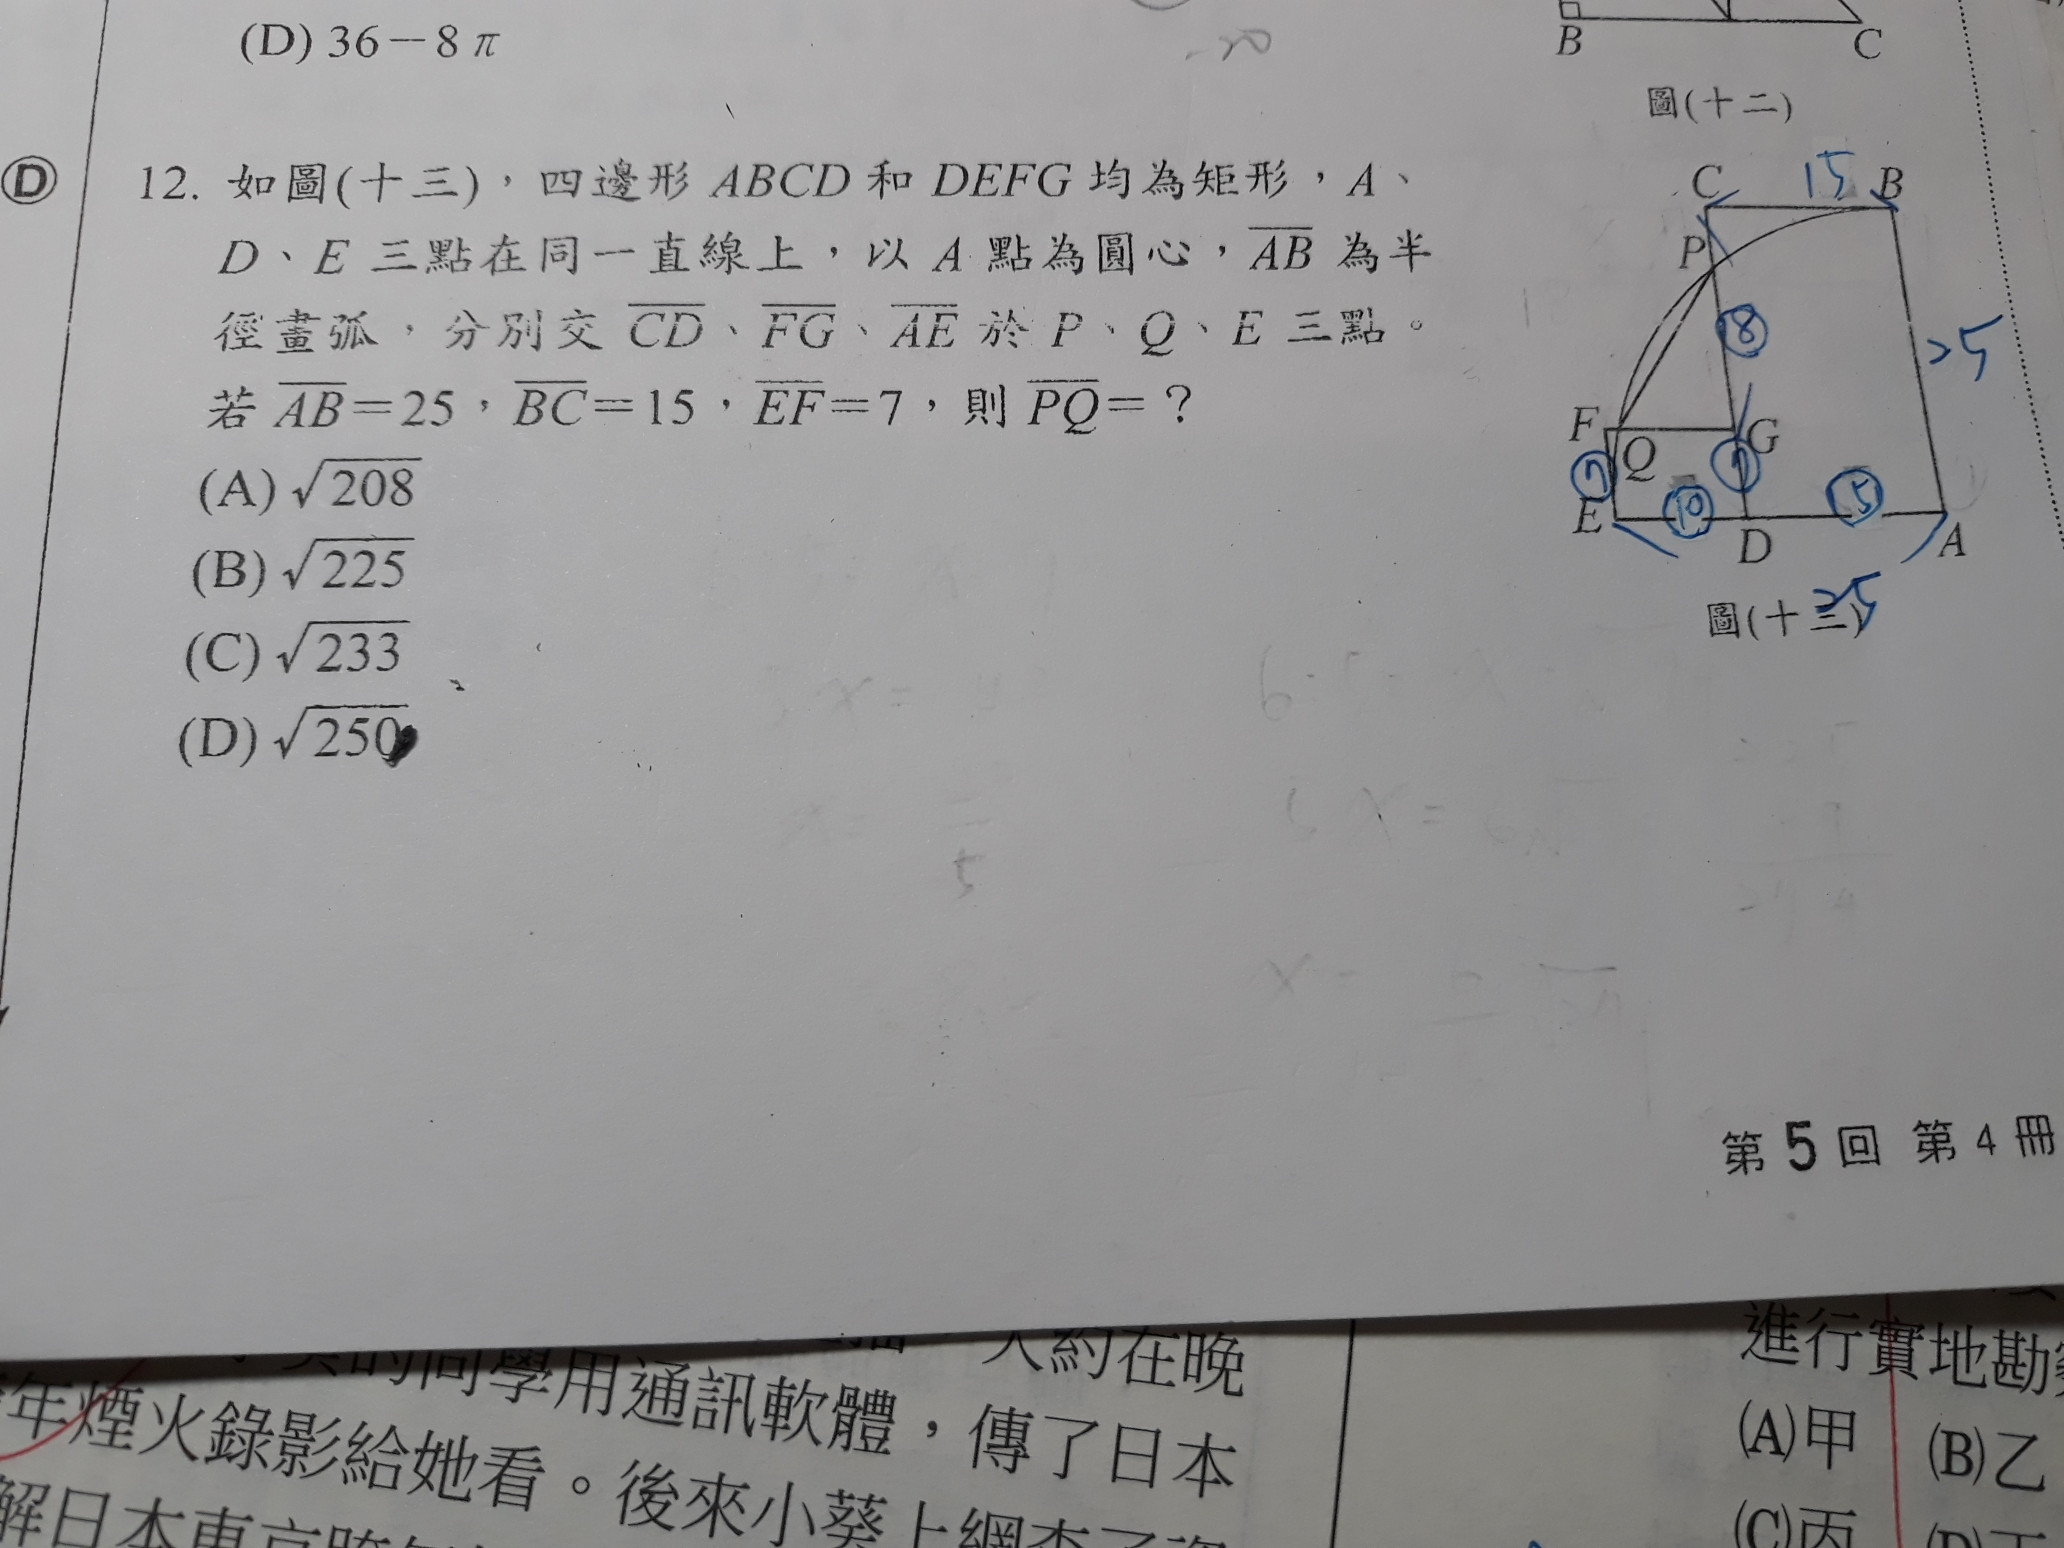 (D) 36－8π
B
C
圖(十二)
Ⓓ
12. 如圖(十三)，四邊形 ABCD 和 DEFG 均為矩形，A、
D、E 三點在同一直線上，以 A 點為圓心，AB 為半
徑畫弧，分別交 CD、FG、AE 於 P、Q、E 三點。
若 AB＝25，BC＝15，EF＝7，則 PQ＝？
(A) √208
(B) √225
(C) √233
(D) √250
C 15 B
P
18
25
F
G
7 Q 7
E 10 D 15 A
25
圖(十三)
第 5 回 第 4 冊
的同學用通訊軟體，傳了日本
年煙火錄影給她看。後來小葵上網查了資
解日本東京跨年
大約在晚
進行實地勘
(A)甲 (B)乙
(C)丙 (D)丁